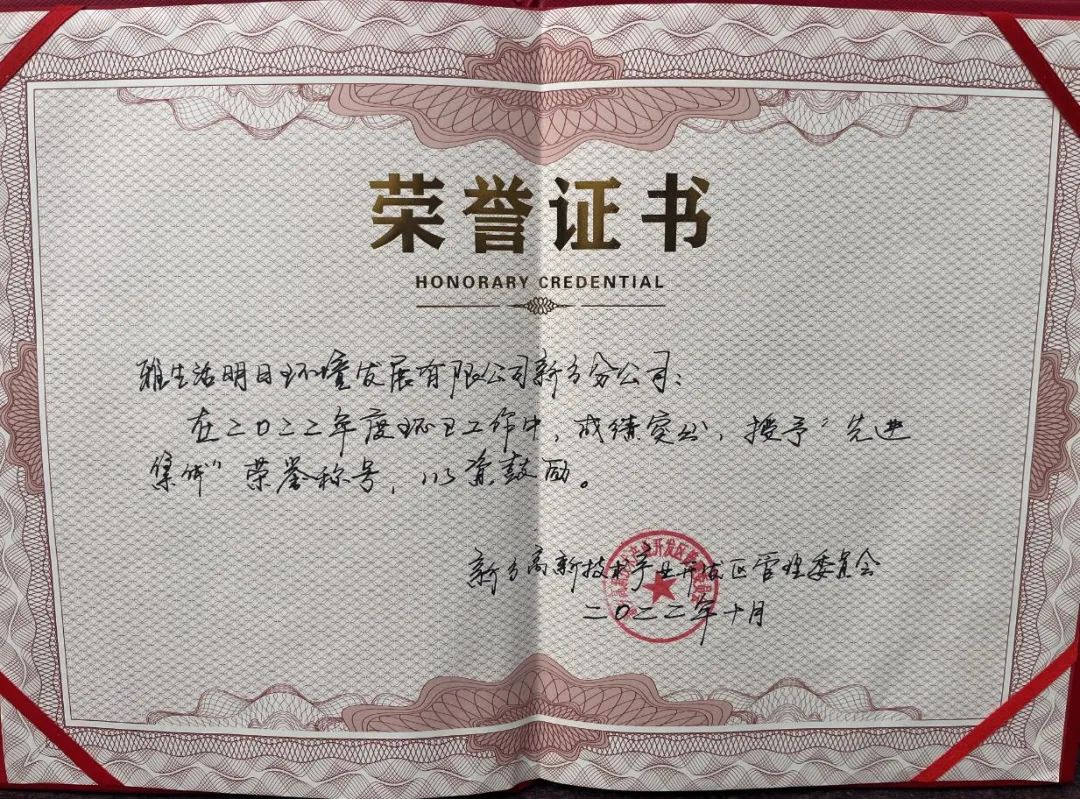 荣誉证书
HONORARY CREDENTIAL
雅生活明日环境发展有限公司新乡分公司：
在二〇二二年度环卫工作中，成绩突出，授予“先进
集体”荣誉称号，以资鼓励。
新乡高新技术产业开发区管理委员会
二〇二二年十月